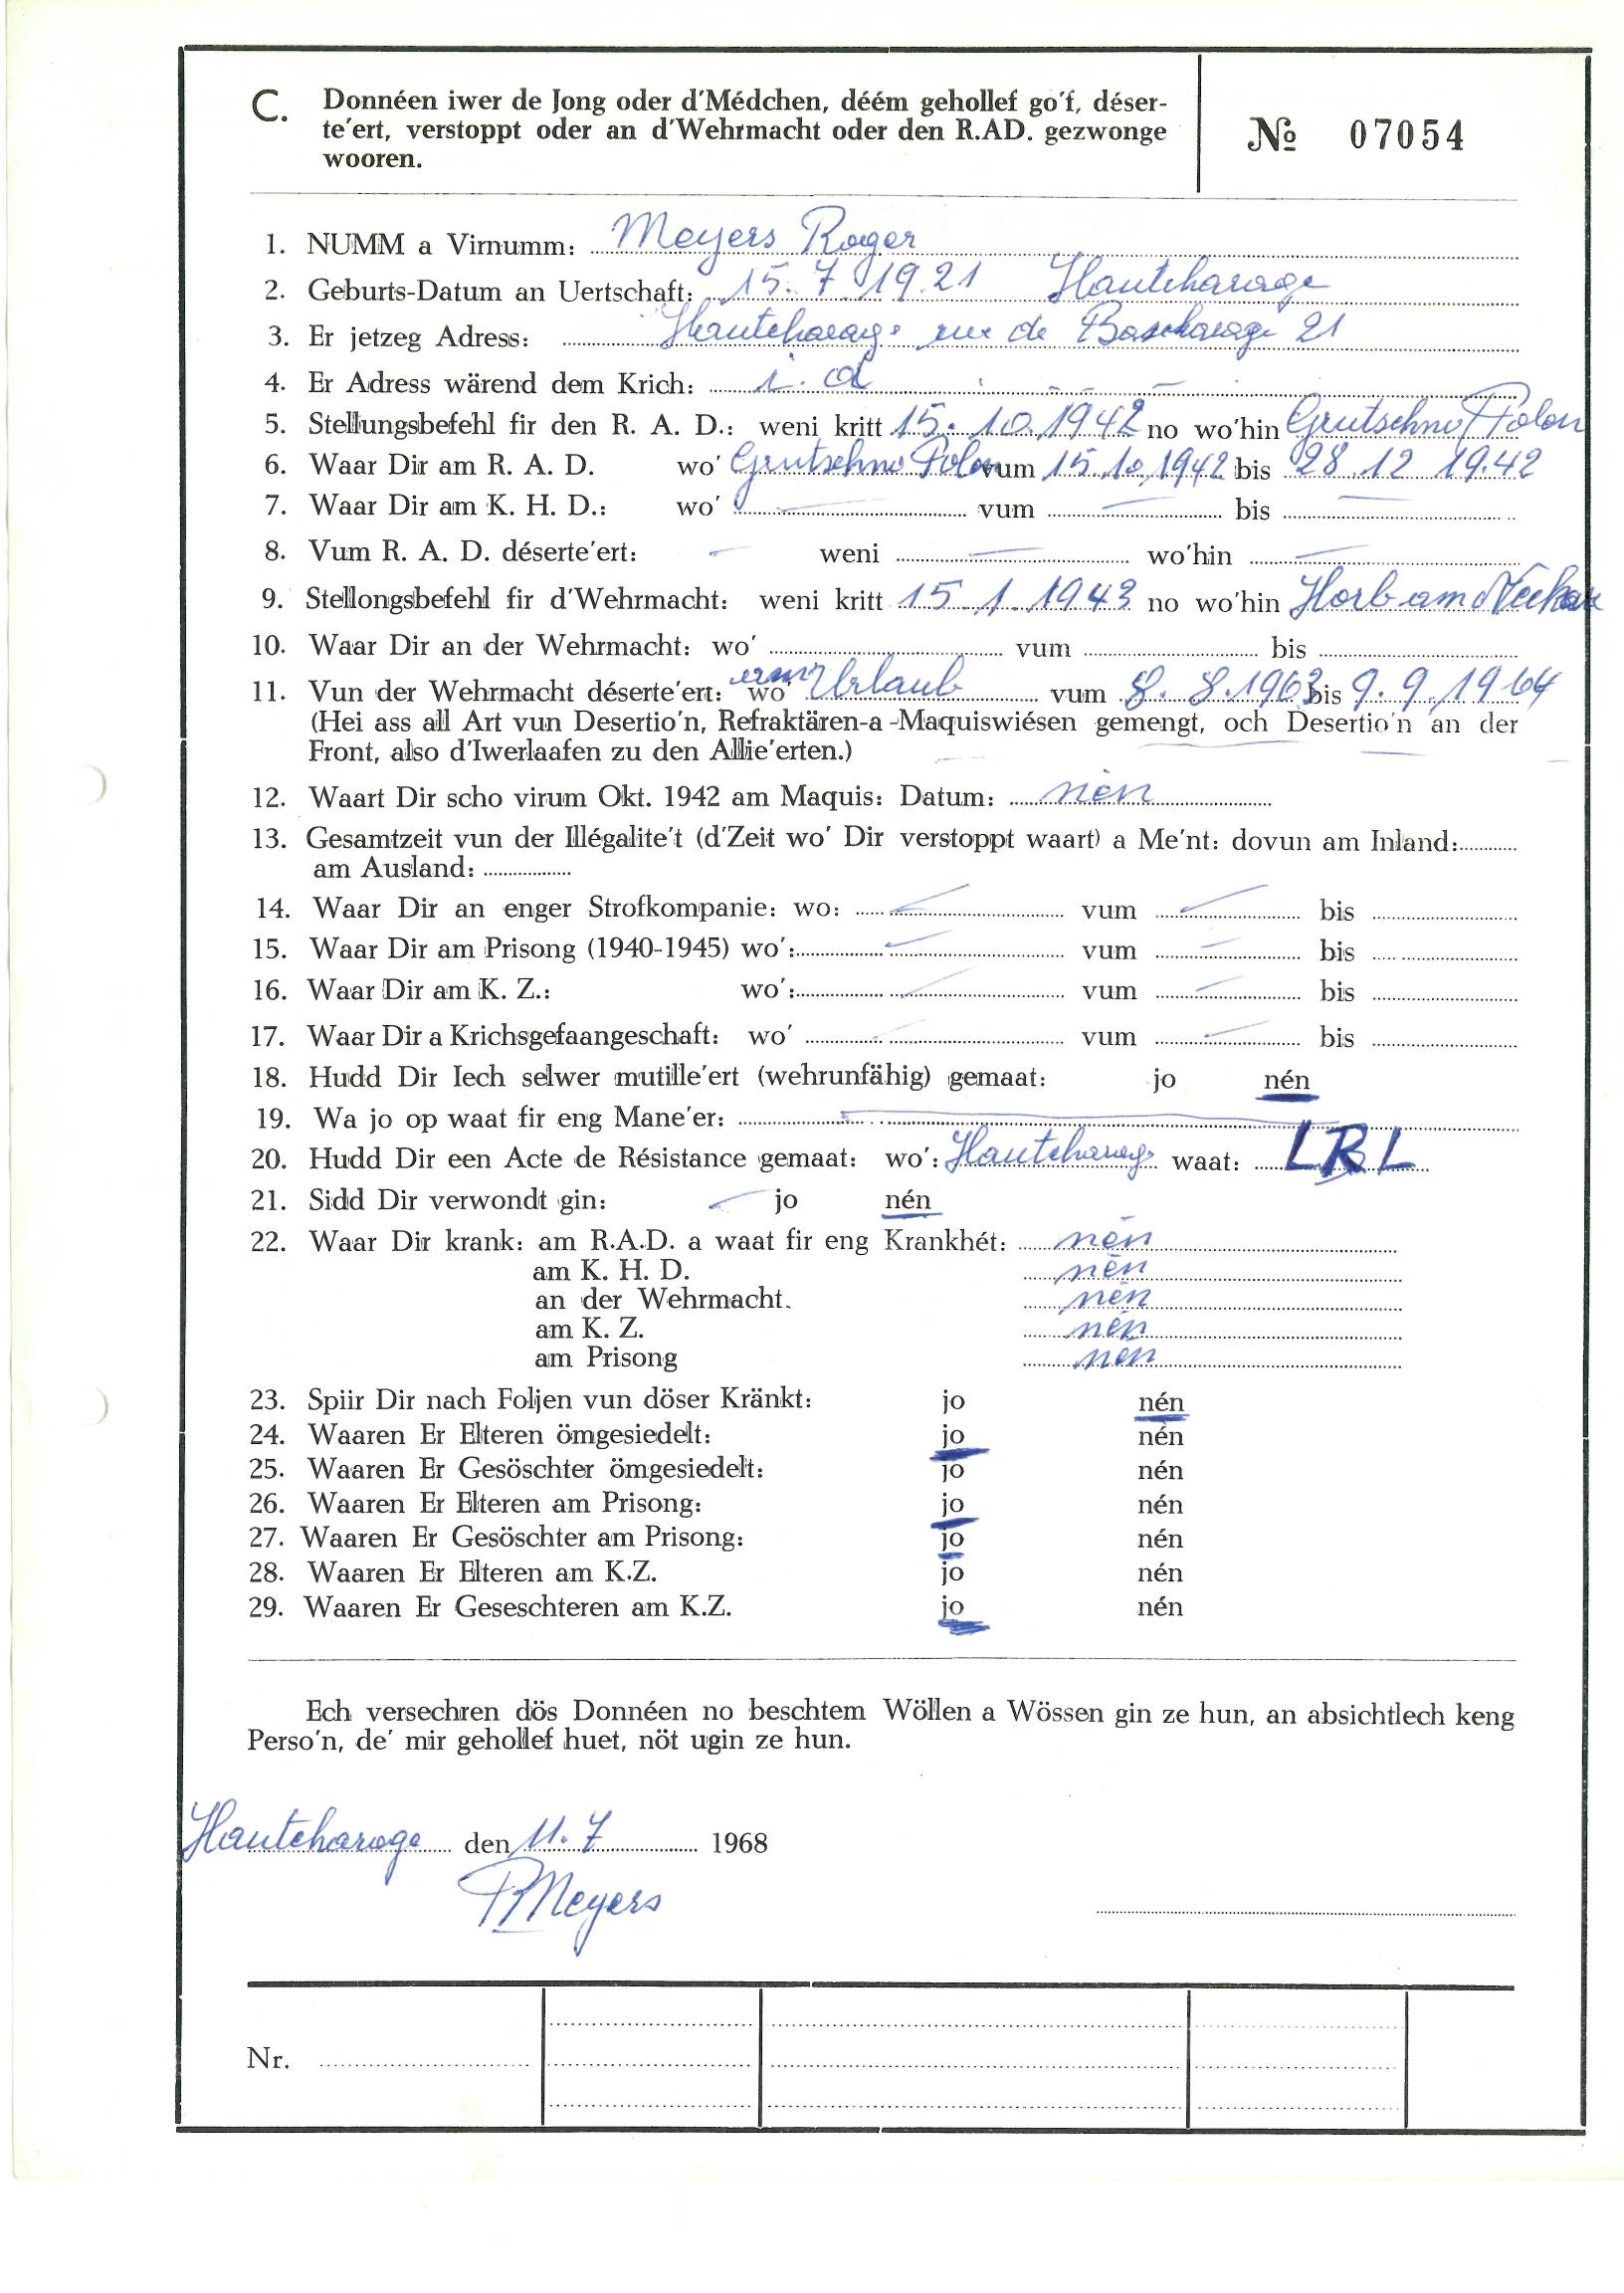 C. Donnéen iwer de Jong oder d'Médchen, déém gehollef go'f, déser-
te'ert, verstoppt oder an d'Wehrmacht oder den R.AD. gezwonge
wooren.
№ 07054
1. NUMM a Virnumm: Meyers Roger
2. Geburts-Datum an Uertschaft: 15. 7. 1921 Hautcharage
3. Er jetzeg Adress: Hautcharage rue de Bascharage 21
4. Er Adress wärend dem Krich: i. d
5. Stellungsbefehl fir den R. A. D.: weni kritt 15. 10. 1942 no wo'hin Grutschno Polon
6. Waar Dir am R. A. D. wo' Grutschno Polon vum 15.10.1942 bis 28.12 1942
7. Waar Dir am K. H. D.: wo' — vum — bis —
8. Vum R. A. D. déserte'ert: — weni — wo'hin —
9. Stellongsbefehl fir d'Wehrmacht: weni kritt 15.1.1943 no wo'hin Horb am Neckar
10. Waar Dir an der Wehrmacht: wo' vum bis
11. Vun der Wehrmacht déserte'ert: wo' Urlaub vum 8. 8. 1963 bis 9. 9. 1964
(Hei ass all Art vun Desertio'n, Refraktären-a-Maquiswiésen gemengt, och Desertio'n an der
Front, also d'Iwerlaafen zu den Allie'erten.)
12. Waart Dir scho virum Okt. 1942 am Maquis: Datum: nén
13. Gesamtzeit vun der Illégalite't (d'Zeit wo' Dir verstoppt waart) a Me'nt: dovun am Inland:
am Ausland:
14. Waar Dir an enger Strofkompanie: wo: — vum — bis
15. Waar Dir am Prisong (1940-1945) wo': — vum — bis
16. Waar Dir am K. Z.: wo': — vum — bis
17. Waar Dir a Krichsgefaangeschaft: wo' — vum — bis
18. Hudd Dir Iech selwer mutille'ert (wehrunfähig) gemaat: jo nén
19. Wa jo op waat fir eng Mane'er: —
20. Hudd Dir een Acte de Résistance gemaat: wo': Hautcharage waat: LRL
21. Sidd Dir verwondt gin: — jo nén
22. Waar Dir krank: am R.A.D. a waat fir eng Krankhét: nén
am K. H. D. nén
an der Wehrmacht. nén
am K. Z. nén
am Prisong nén
23. Spiir Dir nach Foljen vun döser Kränkt: jo nén
24. Waaren Er Elteren ömgesiedelt: jo nén
25. Waaren Er Gesöschter ömgesiedelt: jo nén
26. Waaren Er Elteren am Prisong: jo nén
27. Waaren Er Gesöschter am Prisong: jo nén
28. Waaren Er Elteren am K.Z. jo nén
29. Waaren Er Geseschteren am K.Z. jo nén
Ech versechren dös Donnéen no beschtem Wöllen a Wössen gin ze hun, an absichtlech keng
Perso'n, de' mir gehollef huet, nöt ugin ze hun.
Hautcharage den 11. 7 1968
RMeyers
Nr.